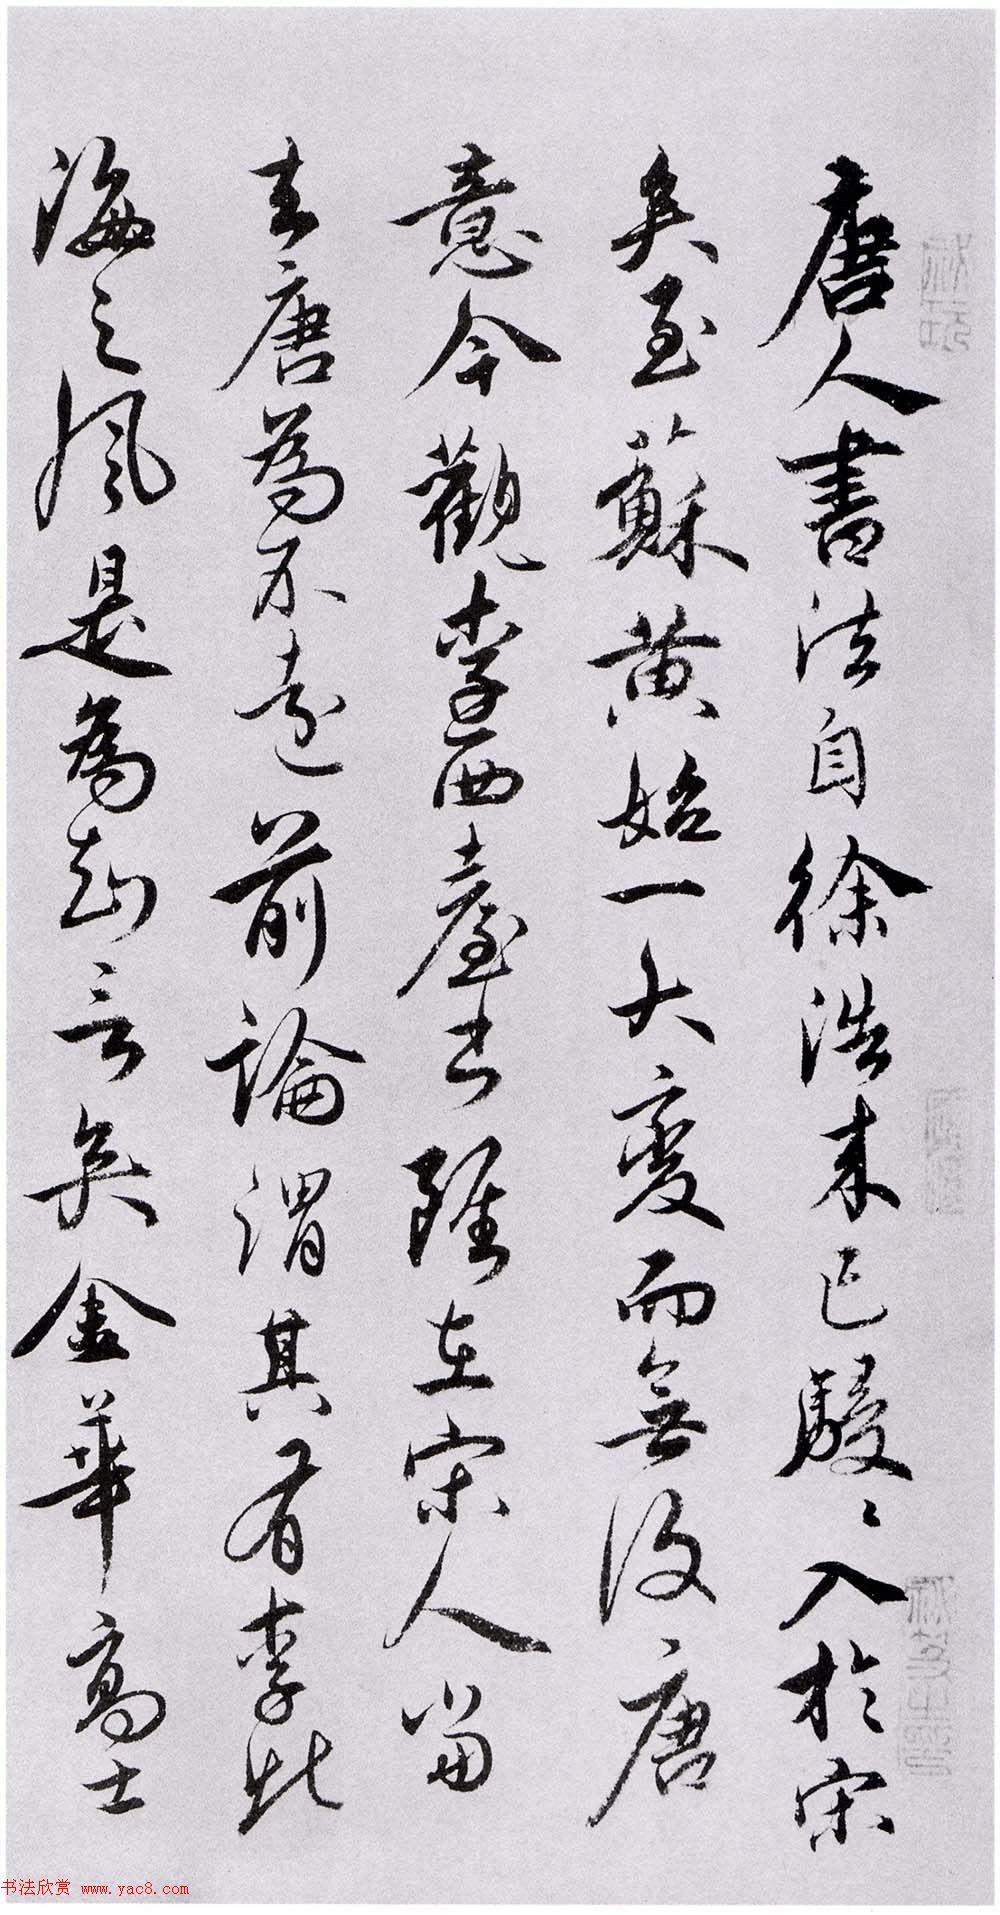 唐人書法自徐浩来已駸〻入於宋
矣至蘇黄始一大變而無復唐
意今觀李西臺书雖在宋人當
去唐為不遠前論謂其有李北
海之風是為知言矣金華高士
书法欣赏 www.yac8.com